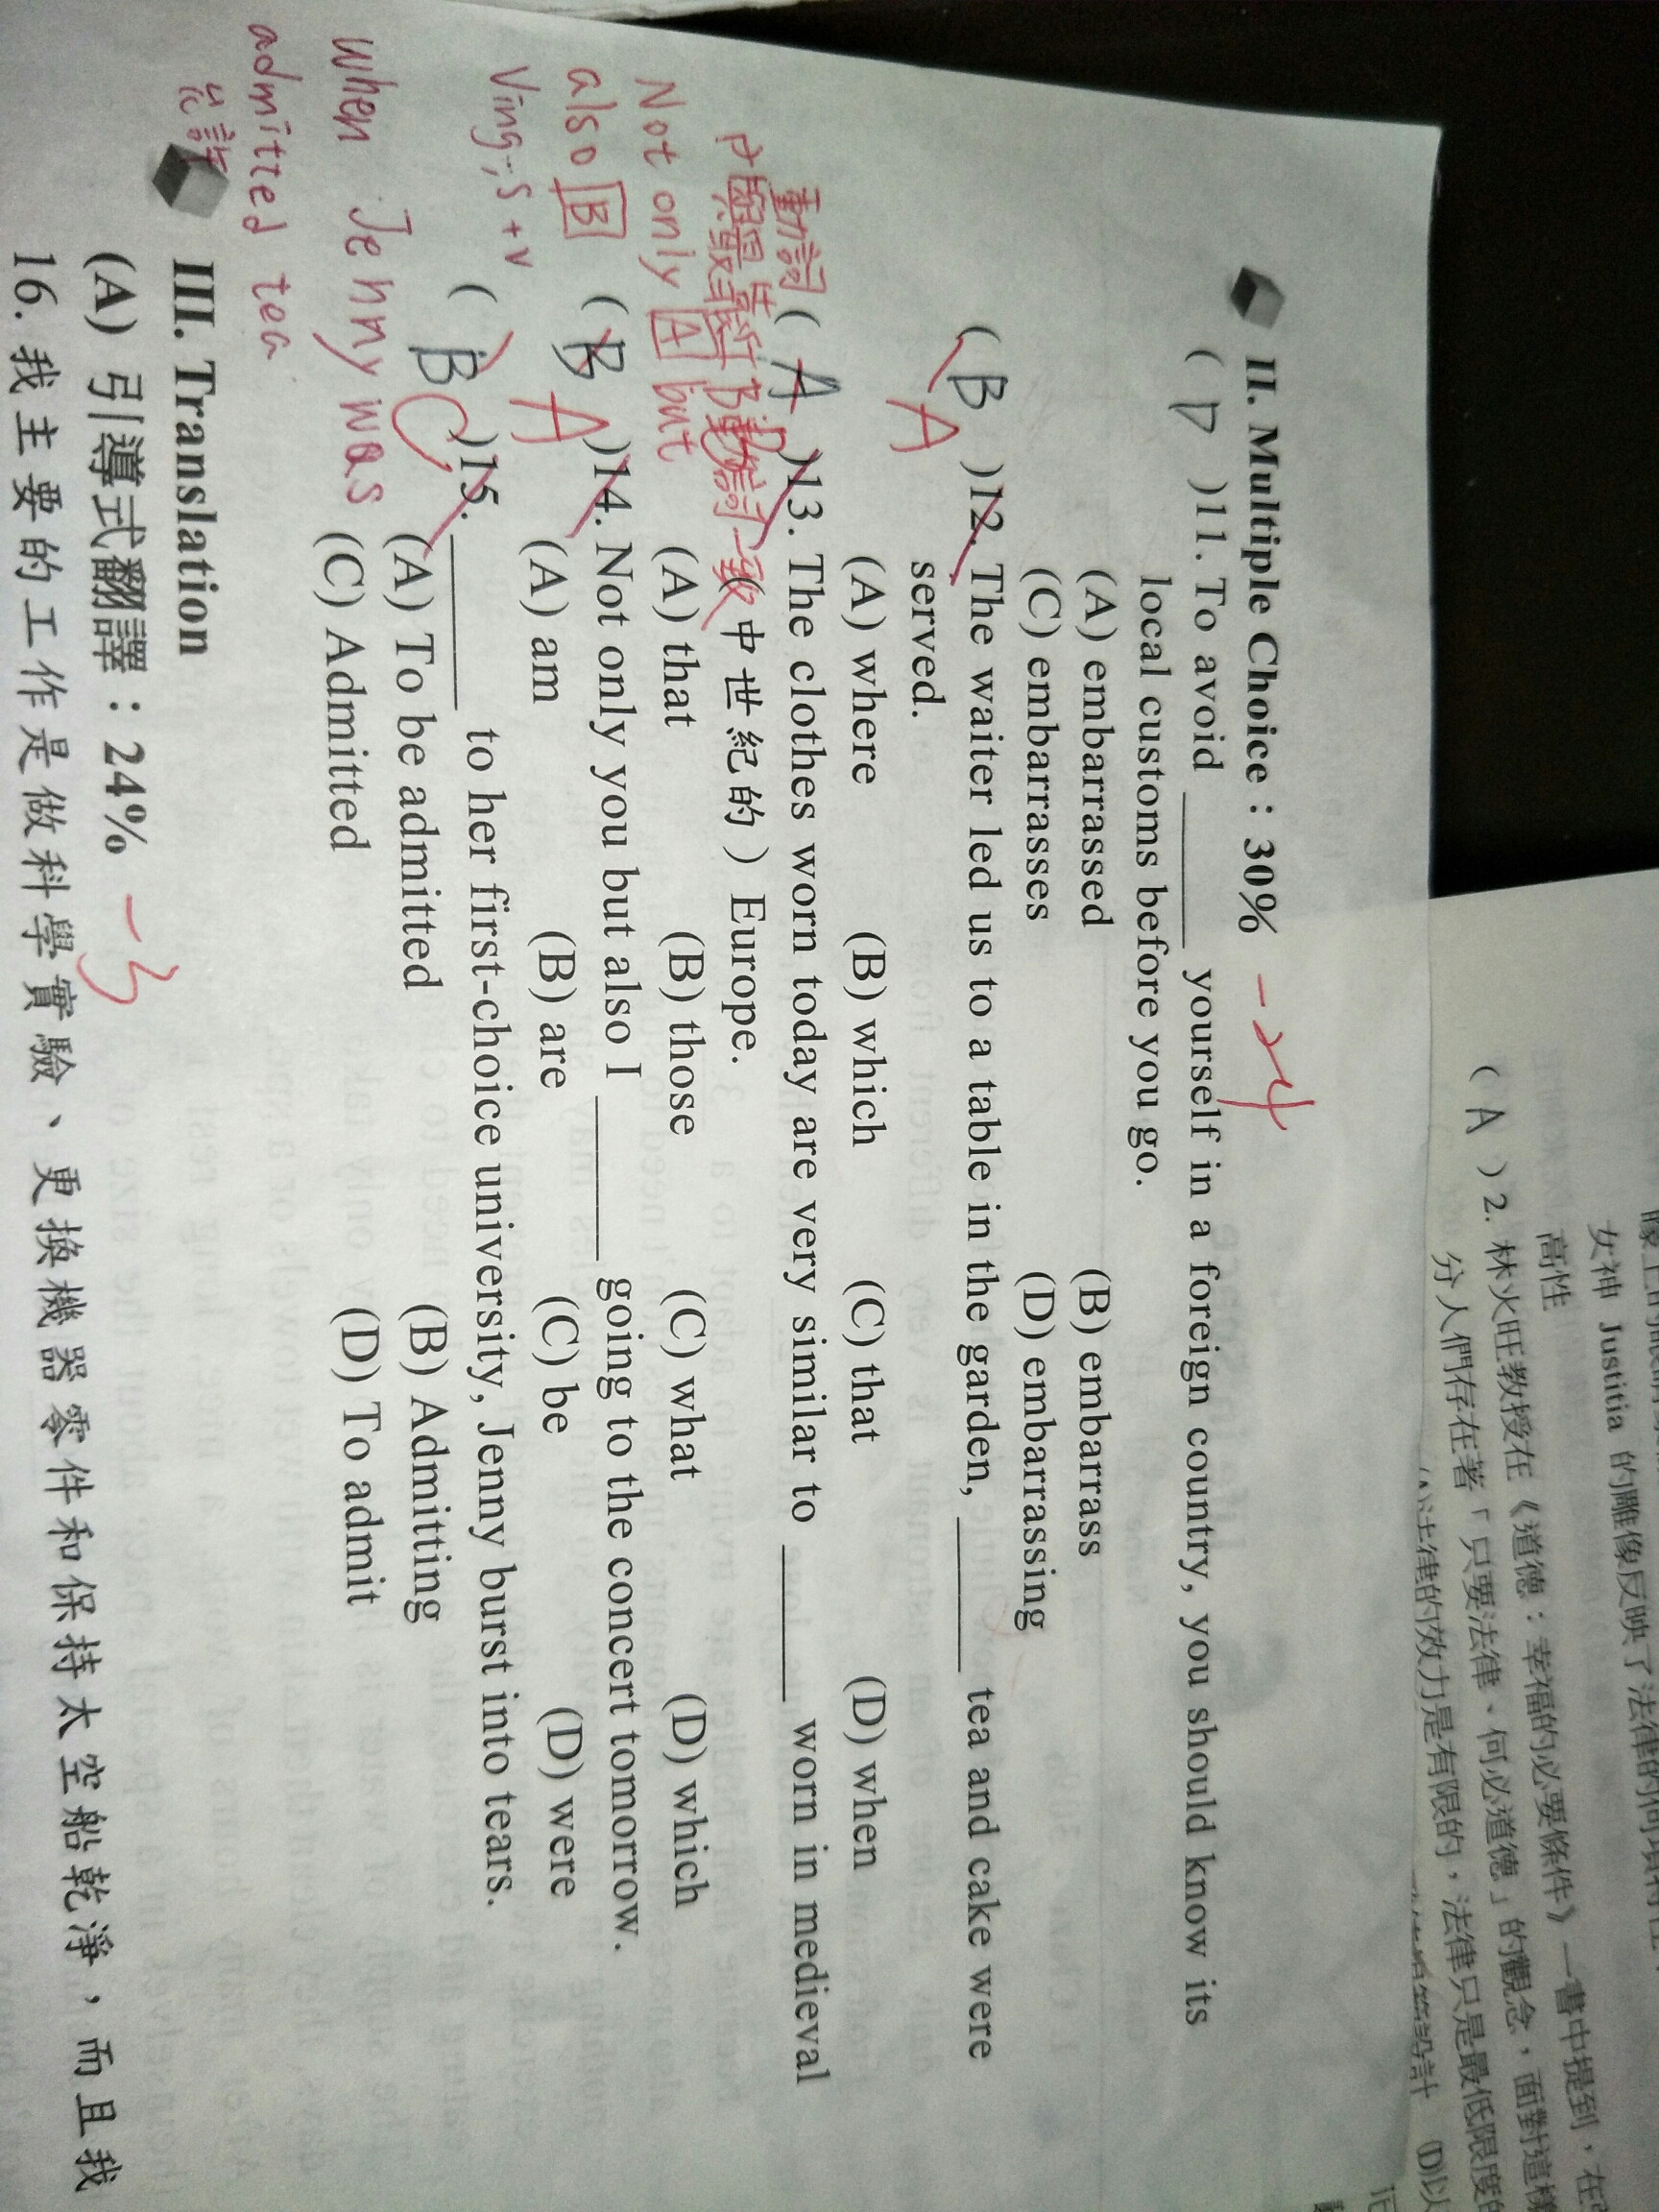 II. Multiple Choice：30% -24
( D )11. To avoid ________ yourself in a foreign country, you should know its
local customs before you go.
(A) embarrassed (B) embarrass
(C) embarrasses (D) embarrassing
( B )12. The waiter led us to a table in the garden, ________ tea and cake were
A
served.
(A) where (B) which (C) that (D) when
動詞
( A )13. The clothes worn today are very similar to ________ worn in medieval
（中世紀的）Europe.
(A) that (B) those (C) what (D) which
Not only A but
also B
( B )14. Not only you but also I ________ going to the concert tomorrow.
A
(A) am (B) are (C) be (D) were
Ving, S + V
( B )15. ________ to her first-choice university, Jenny burst into tears.
C
(A) To be admitted (B) Admitting
(C) Admitted (D) To admit
when Jenny was
admitted
III. Translation
(A) 引導式翻譯：24% -3
16. 我主要的工作是做科學實驗、更換機器零件和保持太空船乾淨，而且我
女神 Justitia 的雕像反映了法律的何項特性
高性
( A )2. 林火旺教授在《道德：幸福的必要條件》一書中提到，在
分人們存在著「只要法律、何必道德」的觀念，面對這樣
法律的效力是有限的，法律只是最低限度